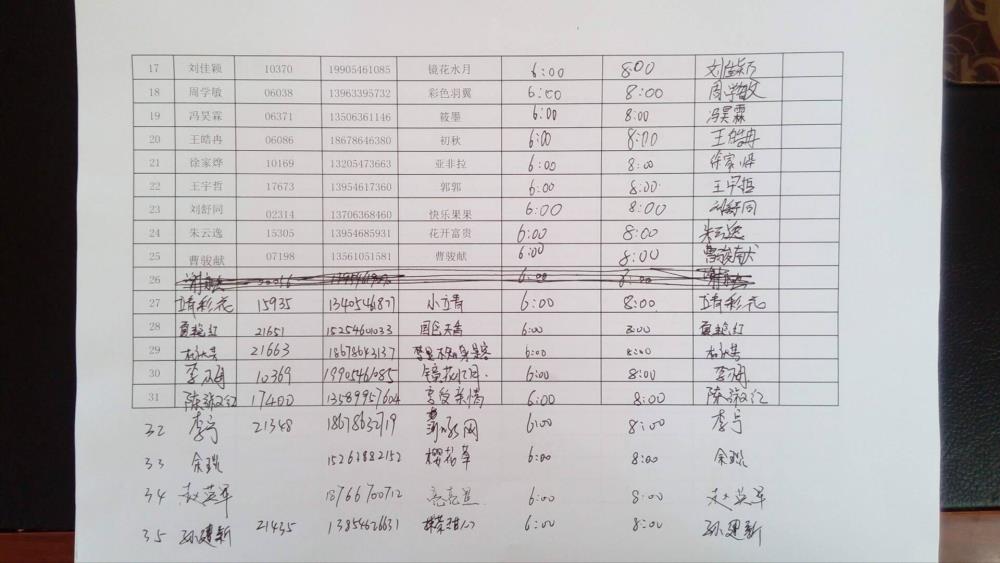 17 刘佳颖 10370 19905461085 镜花水月 6:00 8:00 刘佳颖
18 周学敏 06038 13963395732 彩色羽翼 6:00 8:00 周学敏
19 冯昊霖 06371 13506361146 筱墨 6:00 8:00 冯昊霖
20 王皓冉 06086 18678646380 初秋 6:00 8:00 王皓冉
21 徐家烨 10169 13205473663 亚非拉 6:00 8:00 徐家烨
22 王宇哲 17673 13954617360 郭郭 6:00 8:00 王宇哲
23 刘舒同 02314 13706368460 快乐果果 6:00 8:00 刘舒同
24 朱云逸 15305 13954685931 花开富贵 6:00 8:00 朱云逸
25 曹骏献 07198 13561051581 曹骏献 6:00 8:00 曹骏献
26 6:00 8:00
27 15935 1340546877 小立青 6:00 8:00
28 21651 15254601033 6:00 8:00
29 21663 18678643137 6:00 8:00
30 10369 19905461085 6:00 8:00
31 17400 13589957604 享受亲情 6:00 8:00
32 21348 18678632719 6:00 8:00
33 余璐 15263882152 樱花草 6:00 8:00 余璐
34 赵英军 18766700712 亮亮星 6:00 8:00 赵英军
35 孙建新 21435 13854626631 6:00 8:00 孙建新